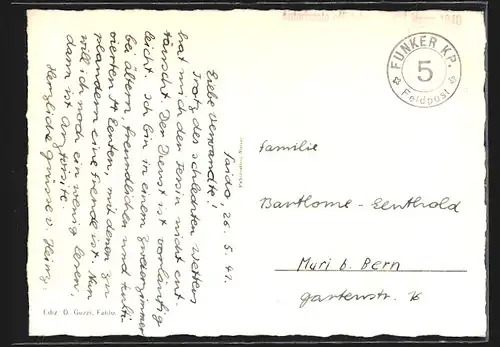 Faido, 26. 5. 41.
Liebe Verwandte!
Trotz des schlechten Wetters
hat mich der Tessin nicht ent-
täuscht. Der Dienst ist vorläufig
leicht. Ich bin in einem Zweierzimmer
bei ältern, freundlichen und kulti-
vierten Leuten, mit denen zu
plaudern eine Freude ist. Nun
will ich noch ein wenig lesen,
dann ist
Herzliche Grüsse v. Heinz.
FUNKER KP.
5
Feldpost
Familie
Barthlome-Lenthold
Muri b. Bern
Gartenstr. 16
Ediz. D. Guzzi, Faido